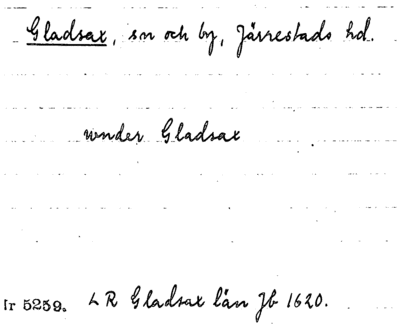 Gladsax, sn och by, Järrestads hd.
under Gladsax
Nr 5259. LR Gladsax län Jb 1620.